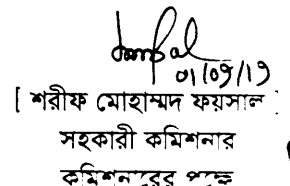 01/09/19
[ শরীফ মোহাম্মদ ফয়সাল
সহকারী কমিশনার
কমিশনারের পক্ষে